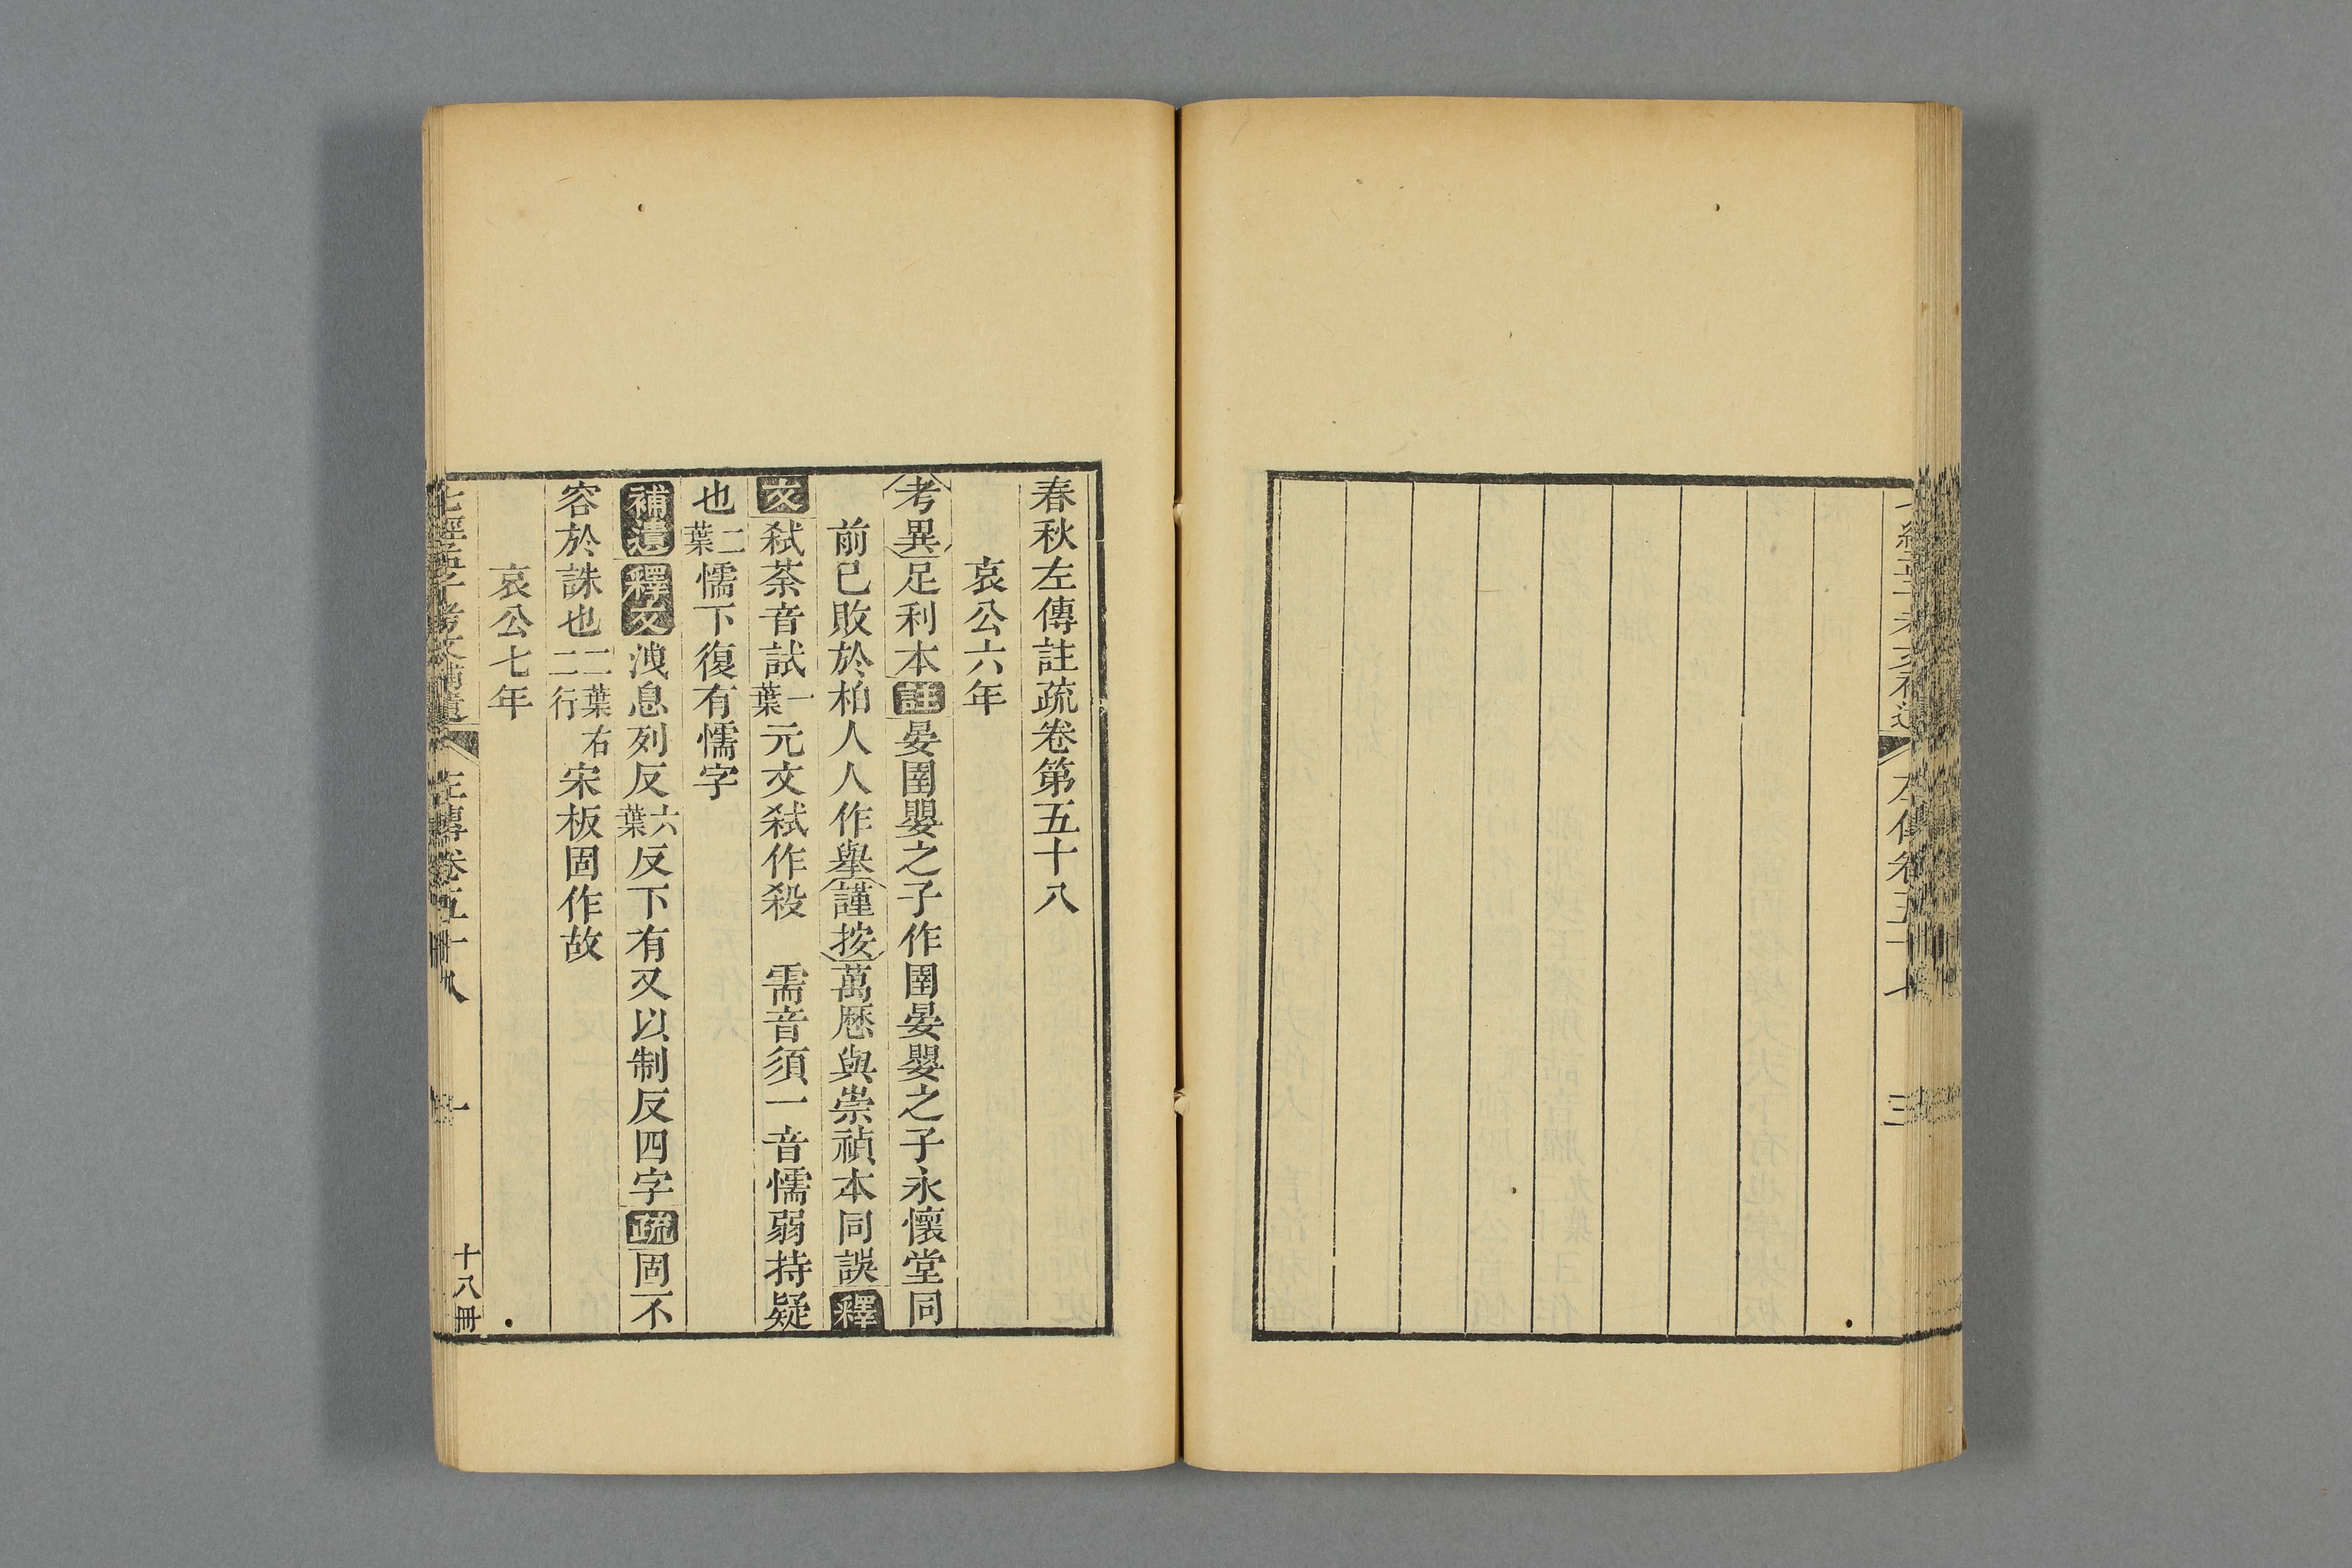 春秋左傳註疏卷第五十八
哀公六年
考異足利本註晏圉嬰之子作圉晏嬰之子永懷堂同
前已敗於柏人人作舉謹按萬厯與崇禎本同誤釋
文弑荼音試一葉元文弑作殺　需音須一音懦弱持疑
也二葉懦下復有懦字
補遺釋文洩息列反六葉反下有又以制反四字疏固不
容於誅也二葉右二行宋板固作故
哀公七年
七經孟子考文補遺　左傳卷五十八　一　十八冊
左傳卷五十七　三